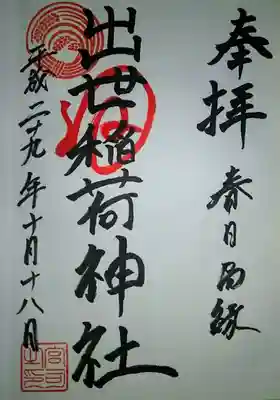 奉拝
春日西縁
出世稲荷神社
平成二十九年十月十八日